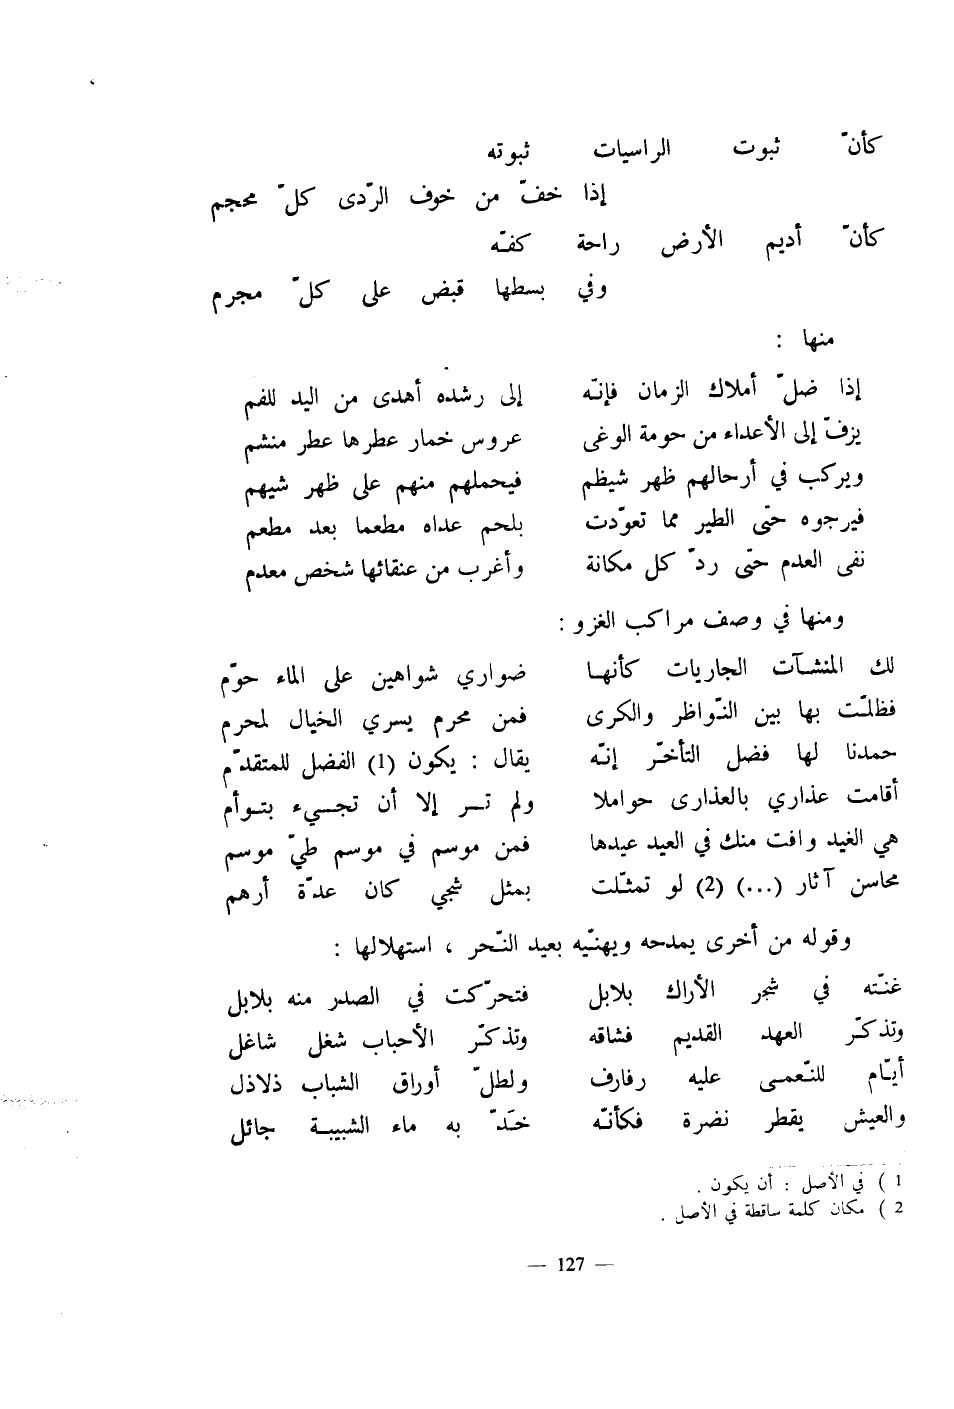 كأنّ ثبوت الراسيات ثبوته
إذا خفّ من خوف الرّدى كلّ محجم
كأنّ أديم الأرض راحة كفّه
وفي بسطها قبض على كلّ مجرم
منها :
إذا ضلّ أملاك الزمان فإنّه إلى رشده أهدى من اليد للفم
يزفّ إلى الأعداء من حومة الوغى عروس خمار عطرها عطر منشم
ويركب في أرحالهم ظهر شيظم فيحملهم منهم على ظهر شيهم
فيرجوه حتّى الطير مما تعوّدت بلحم عداه مطعما بعد مطعم
نفى العدم حتّى ردّ كل مكانة وأغرب من عنقائها شخص معدم
ومنها في وصف مراكب الغزو :
لك المنشآت الجاريات كأنها ضواري شواهين على الماء حوّم
فظلّت بها بين النّواظر والكرى فمن محرم يسري الخيال لمحرم
حمدنا لها فضل التأخّر إنّه يقال : يكون (1) الفضل للمتقدّم
أقامت عذاري بالعذارى حواملا ولم تر إلا أن تجيء بتوأم
هي الغيد وافت منك في العيد عيدها فمن موسم في موسم طيّ موسم
محاسن آثار (...) (2) لو تمثّلت بمثل شجي كان عدّة أرهم
وقوله من أخرى يمدحه ويهنّيه بعيد النّحر ، استهلالها :
غنّته في شجر الأراك بلابل فتحرّكت في الصدر منه بلابل
وتذكّر العهد القديم فشاقه وتذكّر الأحباب شغل شاغل
أيّام للنّعمى عليه رفارف ولطلّ أوراق الشباب ذلاذل
والعيش يقطر نضرة فكأنّه خدّ به ماء الشبيبة جائل
1 ) في الأصل : أن يكون .
2 ) مكان كلمة ساقطة في الأصل .
— 127 —